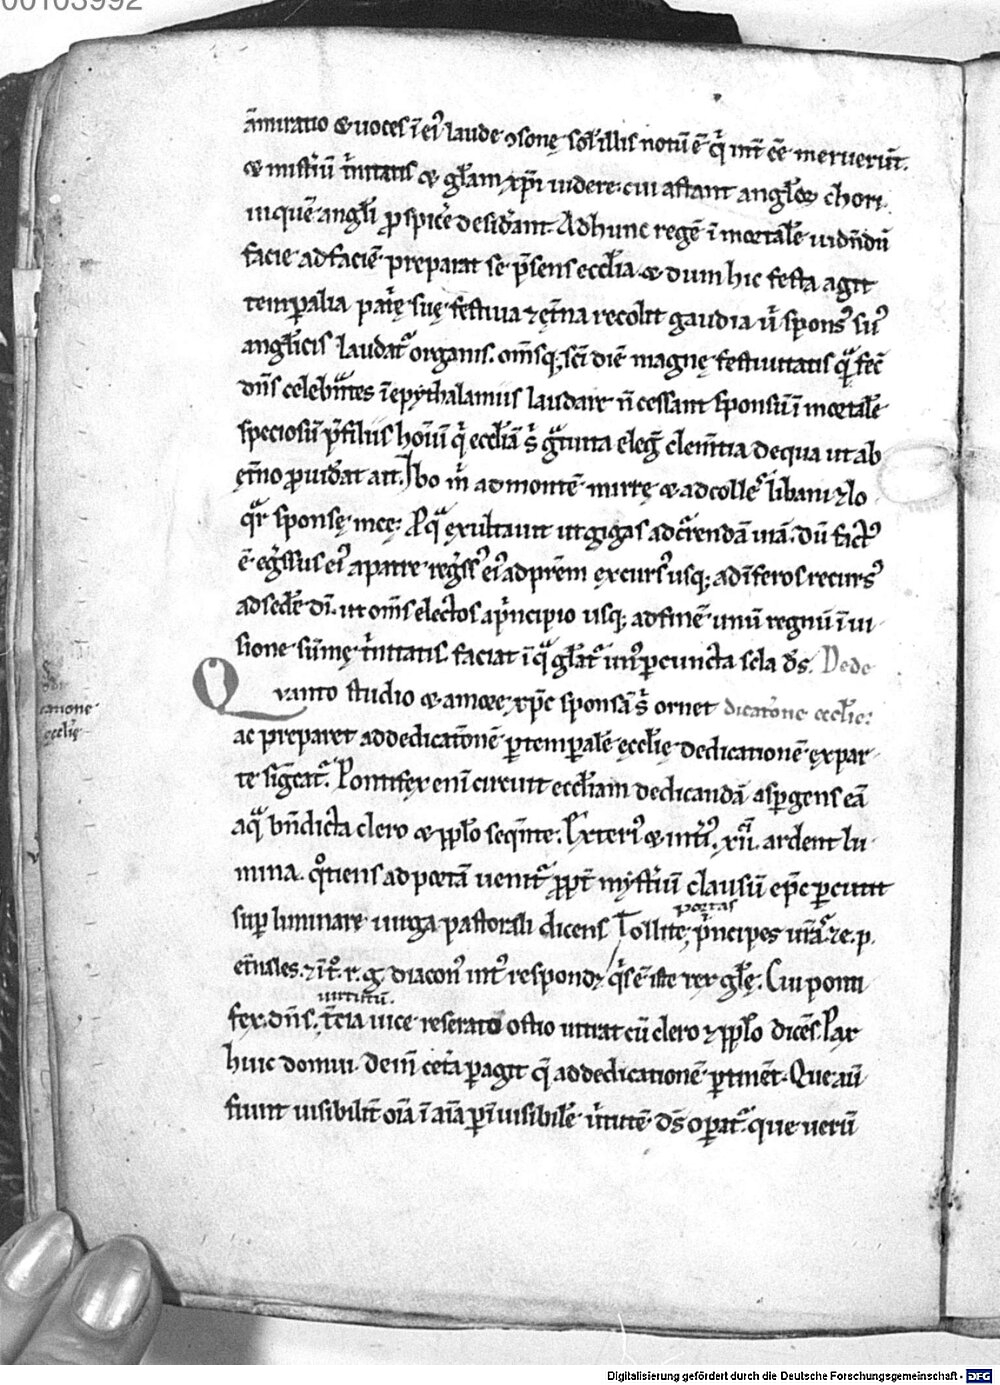 00103992
āmiratio & uoces ī ei' laude ꝯsonę. sol' illis notū ē q' int' eē meruerūt.
& mist'iū t'nitatis & gl'am xp̄i uidere. cui astant anglōꝝ chori.
in quē angl'i ꝓspice' desid'ant. Ad hunc regē ī mortalē uidēdū
facie ad faciē preparat se p̄sens eccl'ia. & dum hic festa agit
temꝑalia pat'ę suę festiua & ęt'na recolit gaudia. ū spons' su'
angl'icis laudat' organis. om̄sq; sc̄i diē magnę festiuitatis q̄ fec'
dn̄s celeb'ntes ī epythalamiis laudare n̄ cessant sponsū ī mortalē
speciosū p̄ filiis hoīū q' eccl'iā s' g'tuita eleg' clem̄tia de qua ut ab
ęt'no ꝓuid'at ait. Ibo m' ad montē mirrę & ad colle' libani & lo
q'r sponsę meę: A q̄ exultauit ut gigas ad c'rendā uiā. dū fact'
ē eg'ssus ei' a patre reg'ss' ei' ad p̄rem excurs' usq; ad īferos recurs'
ad sedē dī. ut om̄s electos a p'ncipio usq; ad finē unū regnū ī ui
sione sūmę t'nitatis faciat ī q̄ gl'at' un' ꝑ cuncta scl'a d̄s. Dede
Quanto studio & amore xp̄c sponsā s' ornet dicatione eccl'ie:
ac preparet ad dedicatōnē ꝑ temꝑalē eccl'ię dedicationē ex par
te sig'catˀ. Pontifex enī circuit eccl'iam dedicandā aspgens eā
aq̄ bn̄dicta clero & ppl'o seq̄nte. Exteri' & int'i' .xii. ardent lu
mina. q°tiens ad portā uenit' ꝓpt' myst'iū clausū ep̄c ꝑcutit
suꝑ luminare uirga pastorali dicens Tollite portas p'ncipes ur̄a' &e. p.
et'nales. & īt°. r. g. diacon' int' respond' q's ē iste rex gl'ę. Cui ponti
fex. dn̄s uirtutū. t'cia uice reserato ostio intrat cū clero & ppl'o dicēs. Pax
huic domui. dein̄ cet'a ꝑagit q̄ ad dedicationē ꝑtinēt. Que aū
fiunt uisibilit' oīa ī aīa ꝑ īuisibilē u'tutē d̄s oꝑat' que uerū
dicatione
ecclię
Digitalisierung gefördert durch die Deutsche Forschungsgemeinschaft - DFG